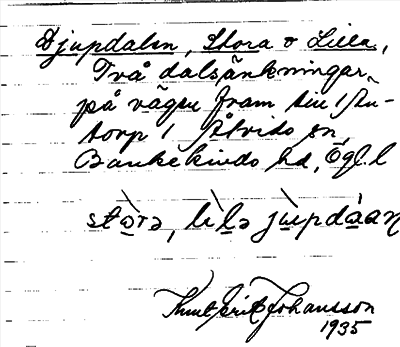 Djupdalen, Stora o Lilla,
Två dalsänkningar
på vägen fram till
torp i Åtvids sn,
Bankekinds hd, Ögl. l
stọ̀rə, lìlə jùpdáan
Knut Erik Johansson
1935